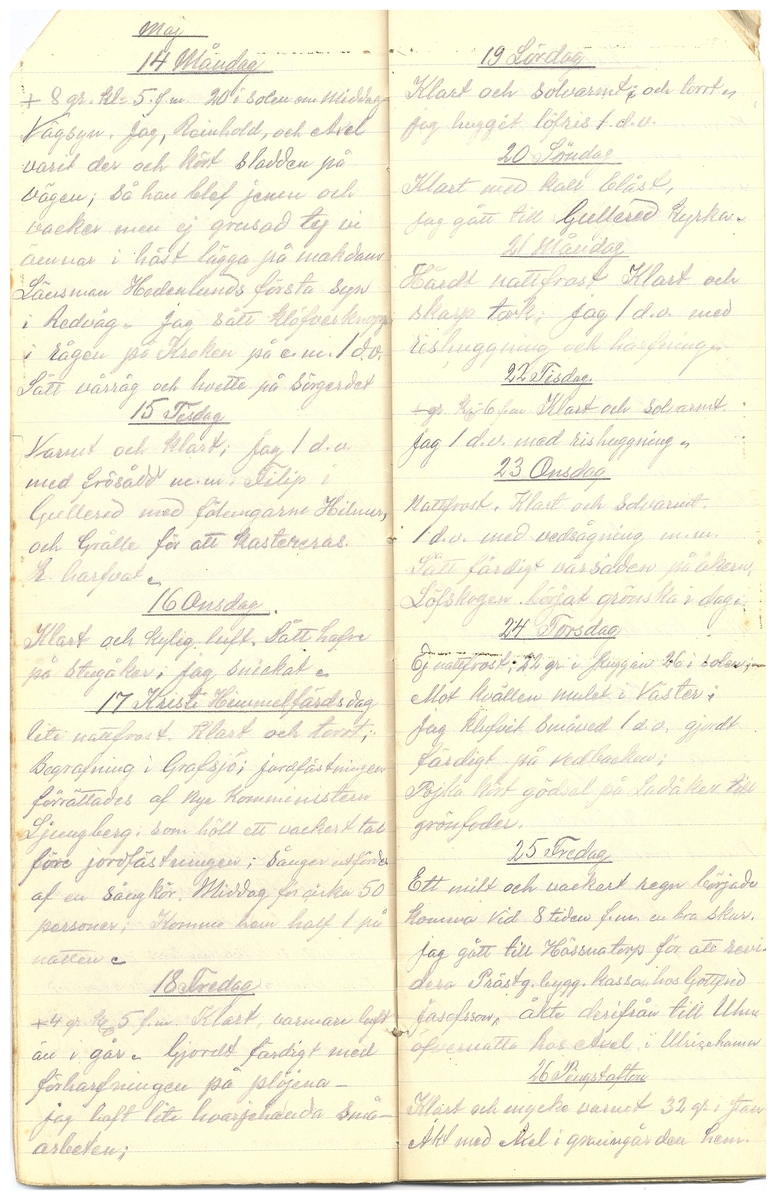 Maj
14 Måndag
+ 8 gr. kl. 5. f.m. 20 i solen om Middag
Vägsyn. Jag, Reinhold, och Axel
varit der och kört sladden på
vägen; så han blef jemn och
vacker men ej grusad ty vi
ämnar i höst lägga på makdam
Länsman Hedenlunds första syn
i Redväg. Jag sått klöfverknopp
i rågen på Kroken på e.m. 1 d.v.
Sått vårråg och hvette på Sörgerdet
15 Tisdag
Varmt och klart; Jag 1 d.v.
med frösådd m.m. Filip i
Gullered med fölungarne Hilmer,
och Grålle för att kastereras.
R. harfvat
16 Onsdag.
Klart och kylig luft. Sått hafre
på stugåker; jag snickat
17 Kristi Himmelfärdsdag
lite nattfrost. Klart och torrt;
Begrafning i Grafsjö; jordfästningen
förrättades af nye Komministern
Ljungberg; som höll ett vackert tal
före jordfästningen; sången utfördes
af en sångkör. Middag för cirka 50
personer; Komme hem half 1 på
natten
18 Fredag
+4 gr. kl. 5 f.m. Klart, varmare luft
än i går. Gjordt färdigt med
förharfningen på plöjena -
jag haft lite hvarjehanda små-
arbeten;
19 Lördag
Klart och solvarmt; och torrt
jag huggit löfris 1 d.v.
20 Söndag
Klart med kall blåst,
jag gått till Gullered Kyrka.
21 Måndag
Hårdt nattfrost Klart och
skarp tork; jag 1 d.v. med
rishuggning och harfning
22 Tisdag.
+ gr. kl. 6 f.m. Klart och solvarmt.
Jag 1 d.v. med rishuggning
23 Onsdag
Nattfrost. Klart och solvarmt.
1 d.v. med vedsågning m.m.
Sått färdigt vårsäden på åkern,
Löfskogen börjat grönska i dag;
24 Torsdag
Ej nattfrost; 22 gr. i skuggan 26 i solen;
Mot kvällen mulet i Väster;
Jag klufvit småved 1 d.v. gjordt
färdigt på vedbacken;
Pojka kört gödsel på Ladåker till
grönfoder.
25 Fredag
Ett milt och vackert regn började
komma vid 8 tiden f.m. en bra skur.
jag gått till Hössnatorp för att revi-
dera Prästg. bygg. kassan hos Gottfrid
Josefsson, åkte derifrån till Ulm
öfvernatta hos Axel i Ulricehamn
26 Pingstafton
Klart och mycke varmt 32 gr. i
Åkt med Axel i gryningen hem.